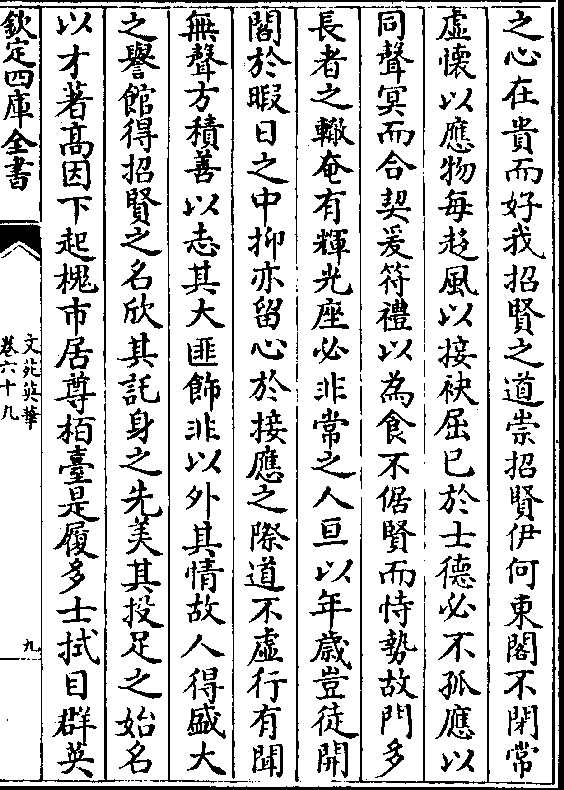 之心在貴而好我招賢之道崇招賢伊何東閣不閉常
虛懷以應物每趍風以接袂屈已於士德必不孤應以
同聲冥而合契爰符禮以為食不倨賢而恃勢故門多
長者之轍奄有輝光座必非常之人亘以年歲豈徒開
閣於暇日之中抑亦留心於接應之際道不虛行有聞
無聲方積善以志其大匪飾非以外其情故人得盛大
之譽館得招賢之名欣其託身之先美其投足之始名
以才著高因下起槐市居尊栢臺是履多士拭目羣英
欽定四庫全書
文苑英華
卷六十九
九